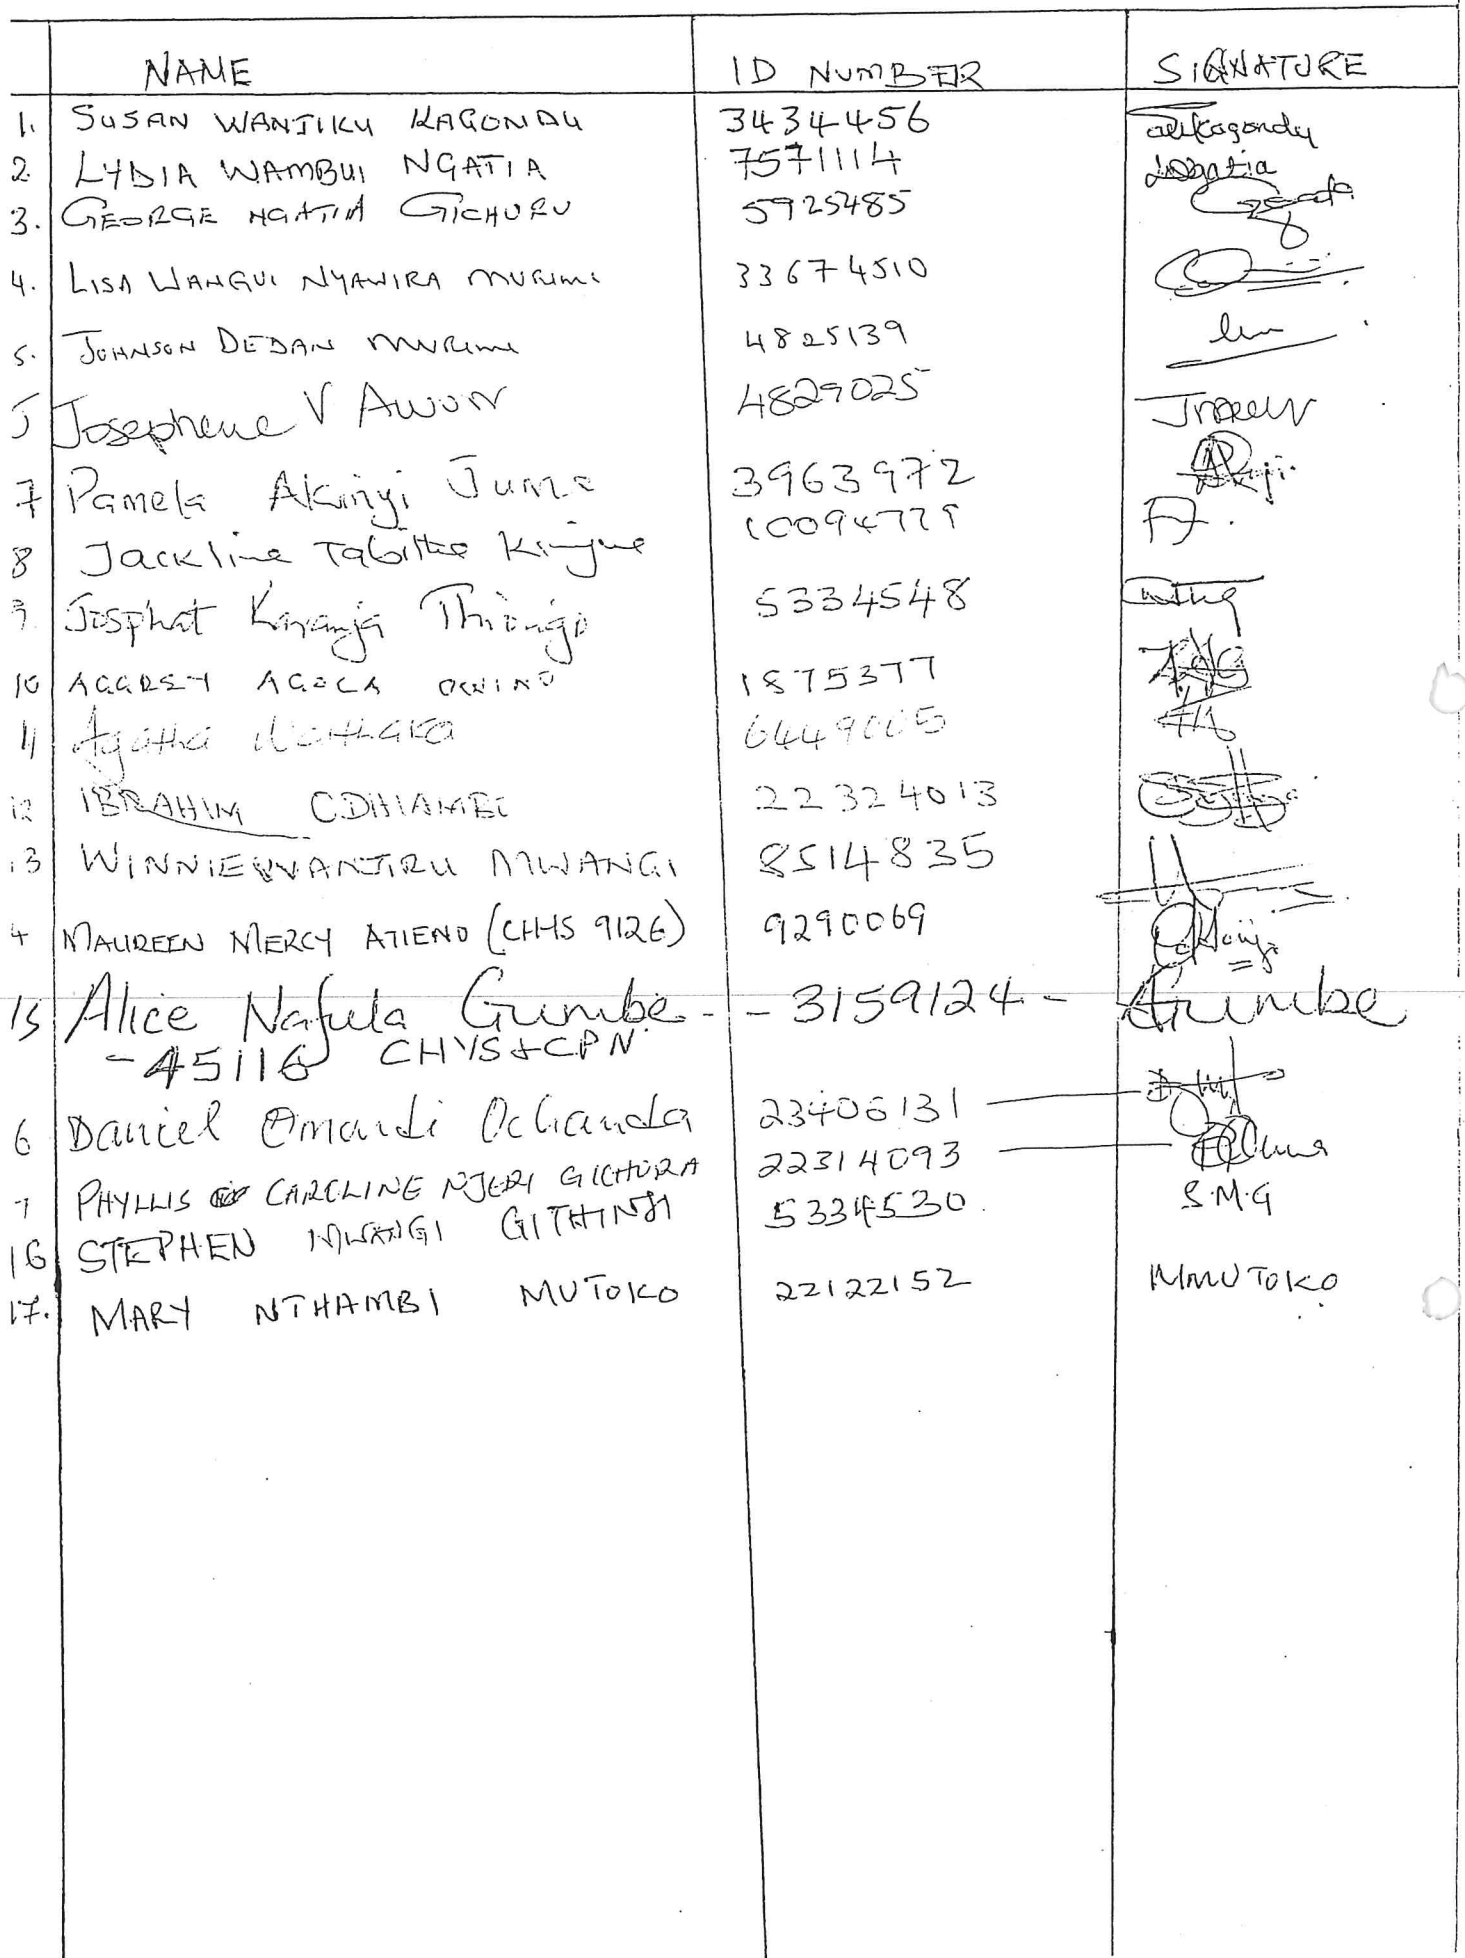 NAME ID NUMBER SIGNATURE
1. SUSAN WANJIKU KAGONDU 3434456
2. LYDIA WAMBUI NGATIA 7571114
3. GEORGE NGATIA GICHURU 5925485
4. LISA WANGUI NYAWIRA MURIMI 33674510
5. JOHNSON DEDAN MURIMI 4825139
Josephene V AWUOR 4829025
7 Pamela Akinyi Juma 3963972
8 Jackline Tabitha
9. Josphat Karanja Thiongo 5334548
10 AGGREY AGOLA OWINO 1875377
11 Agatha
12 IBRAHIM ODHIAMBO 22324013
13 WINNIE WANJIRU MWANGI 8514835
4 MAUREEN MERCY ATIENO (CHHS 9126) 9290069
15 Alice Nafula Gumbe - - 3159124 - Gumbe
- 45116 CHVS+CPN
6 Daniel Omondi Ochanda 23406131
7 PHYLLIS CAROLINE NJERI GICHURA 22314093
16 STEPHEN MWANGI GITHINJI 5334530 S.M.G
17. MARY NTHAMBI MUTOKO 22122152 MMUTOKO